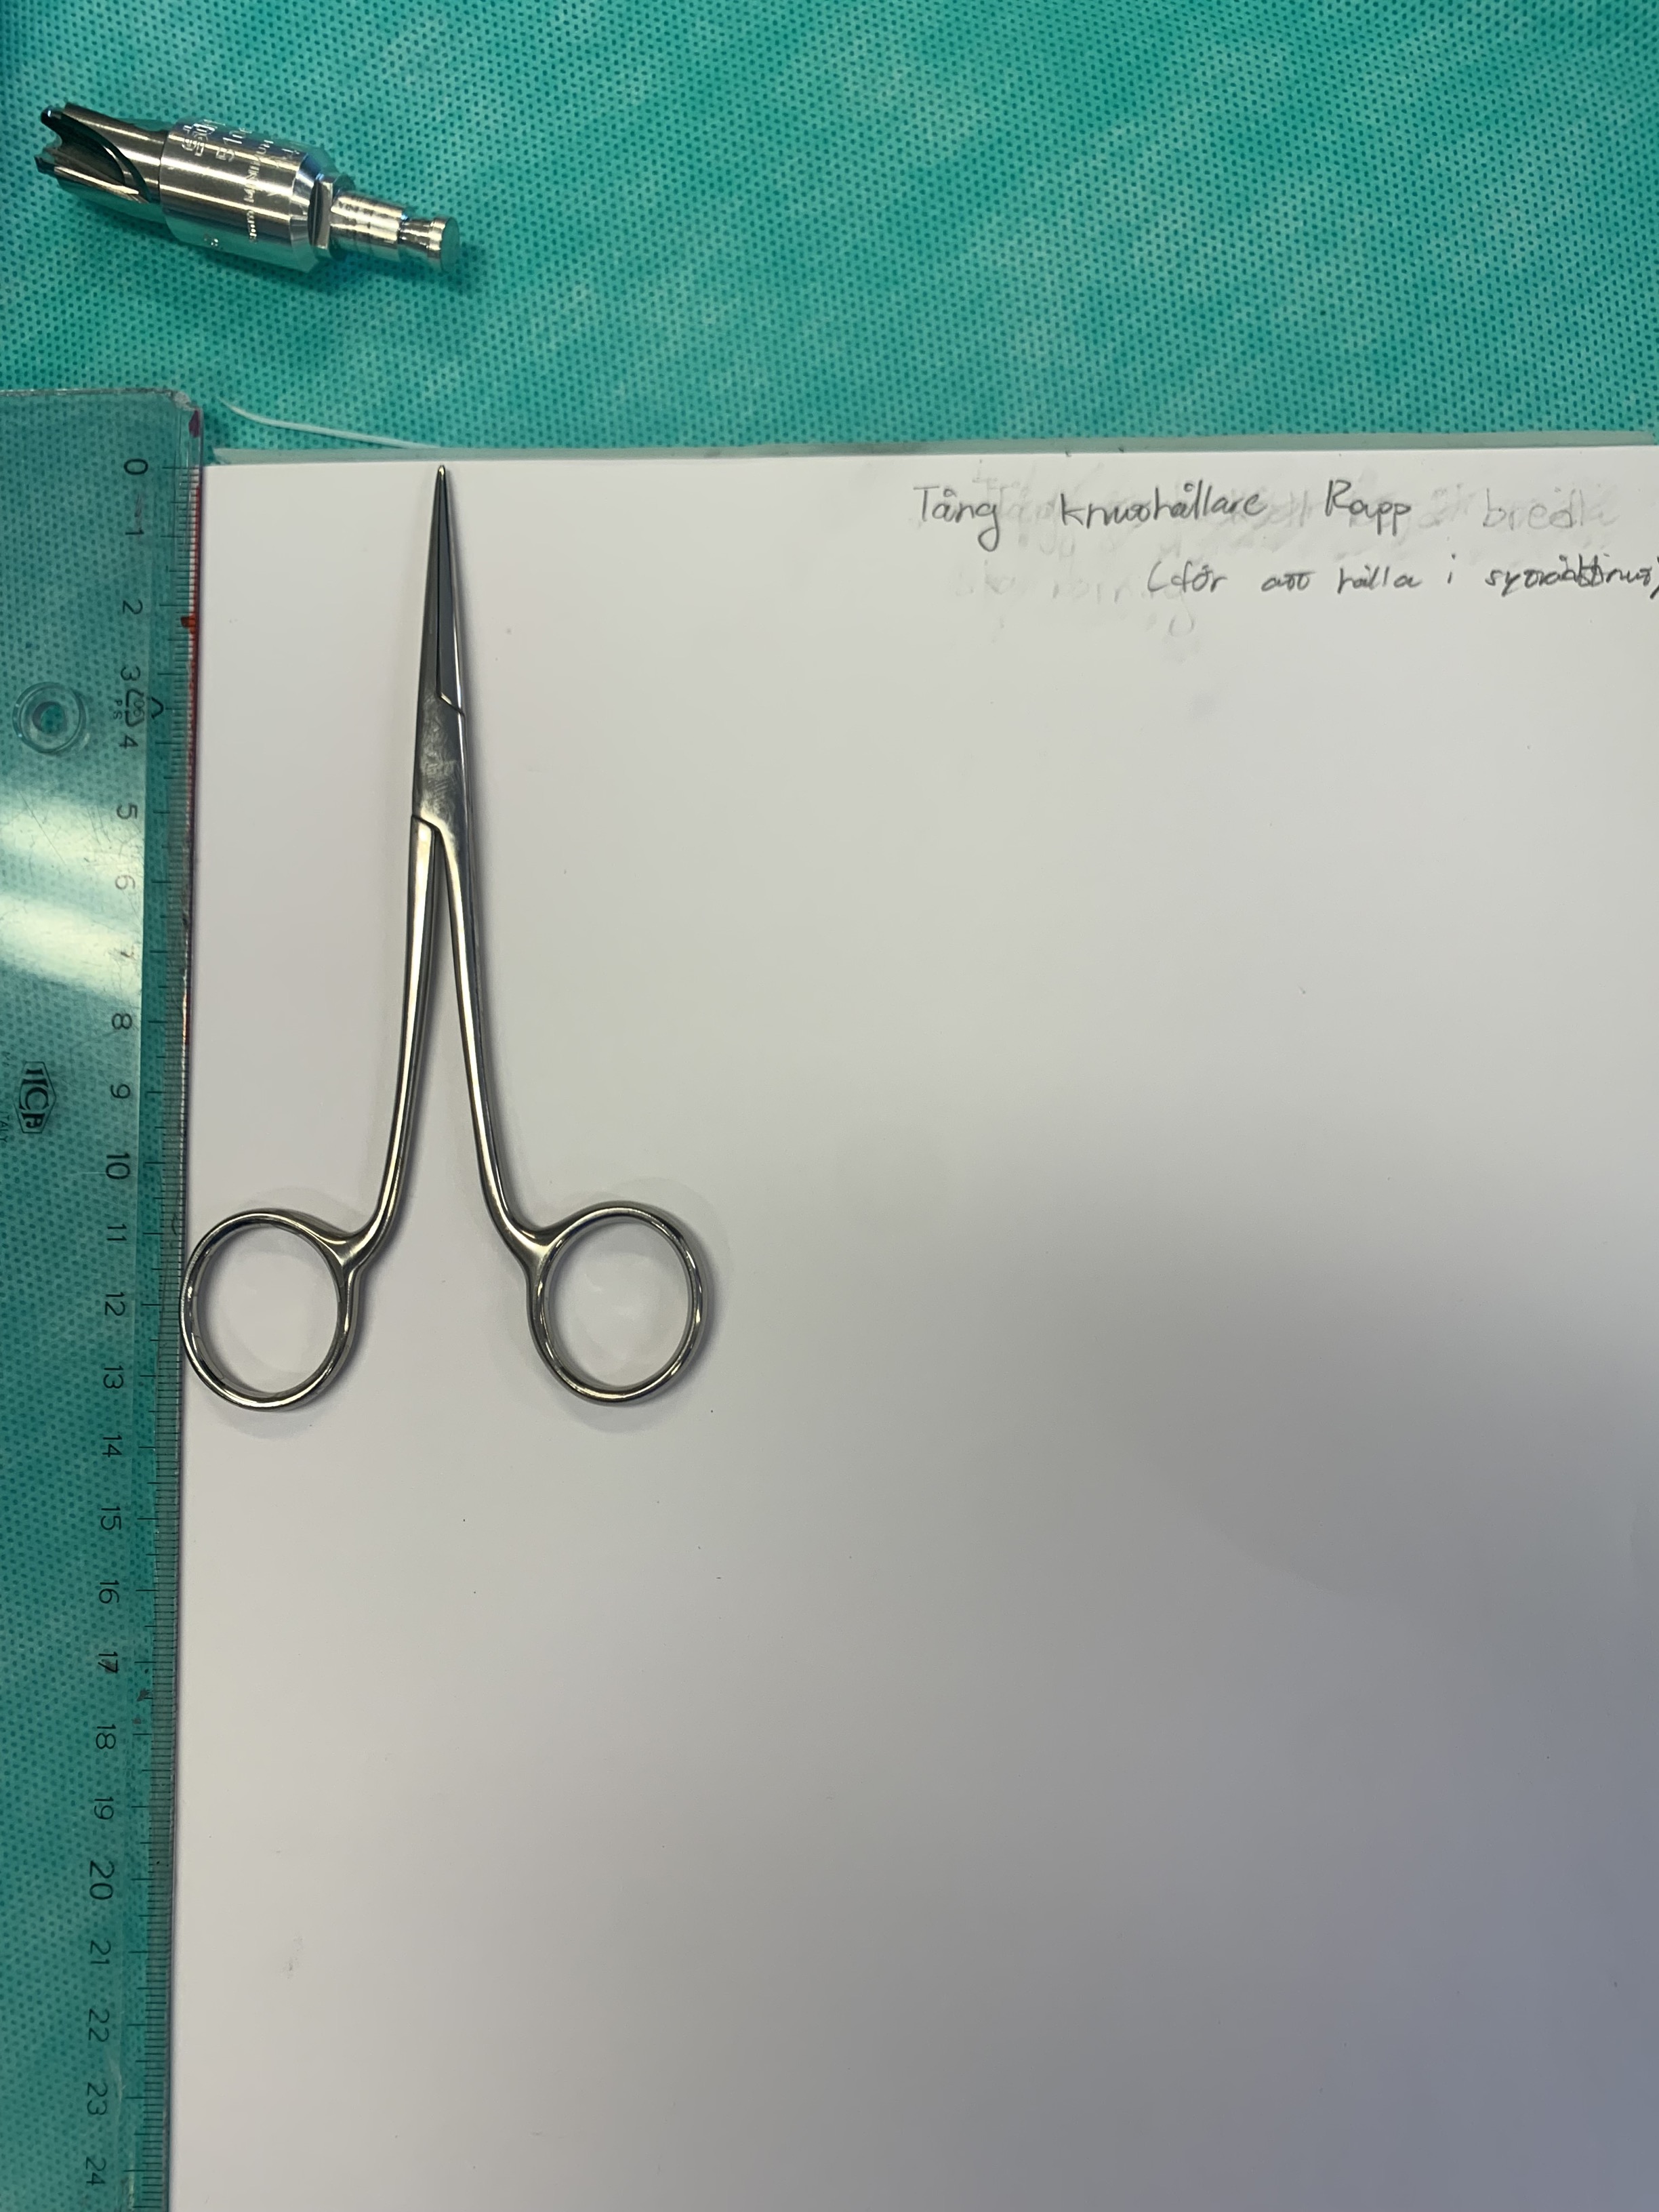 Tång knuthållare Rapp
(för att hålla i
0
1
2
3
4
5
6
7
8
9
10
11
12
13
14
15
16
17
18
19
20
21
22
23
24